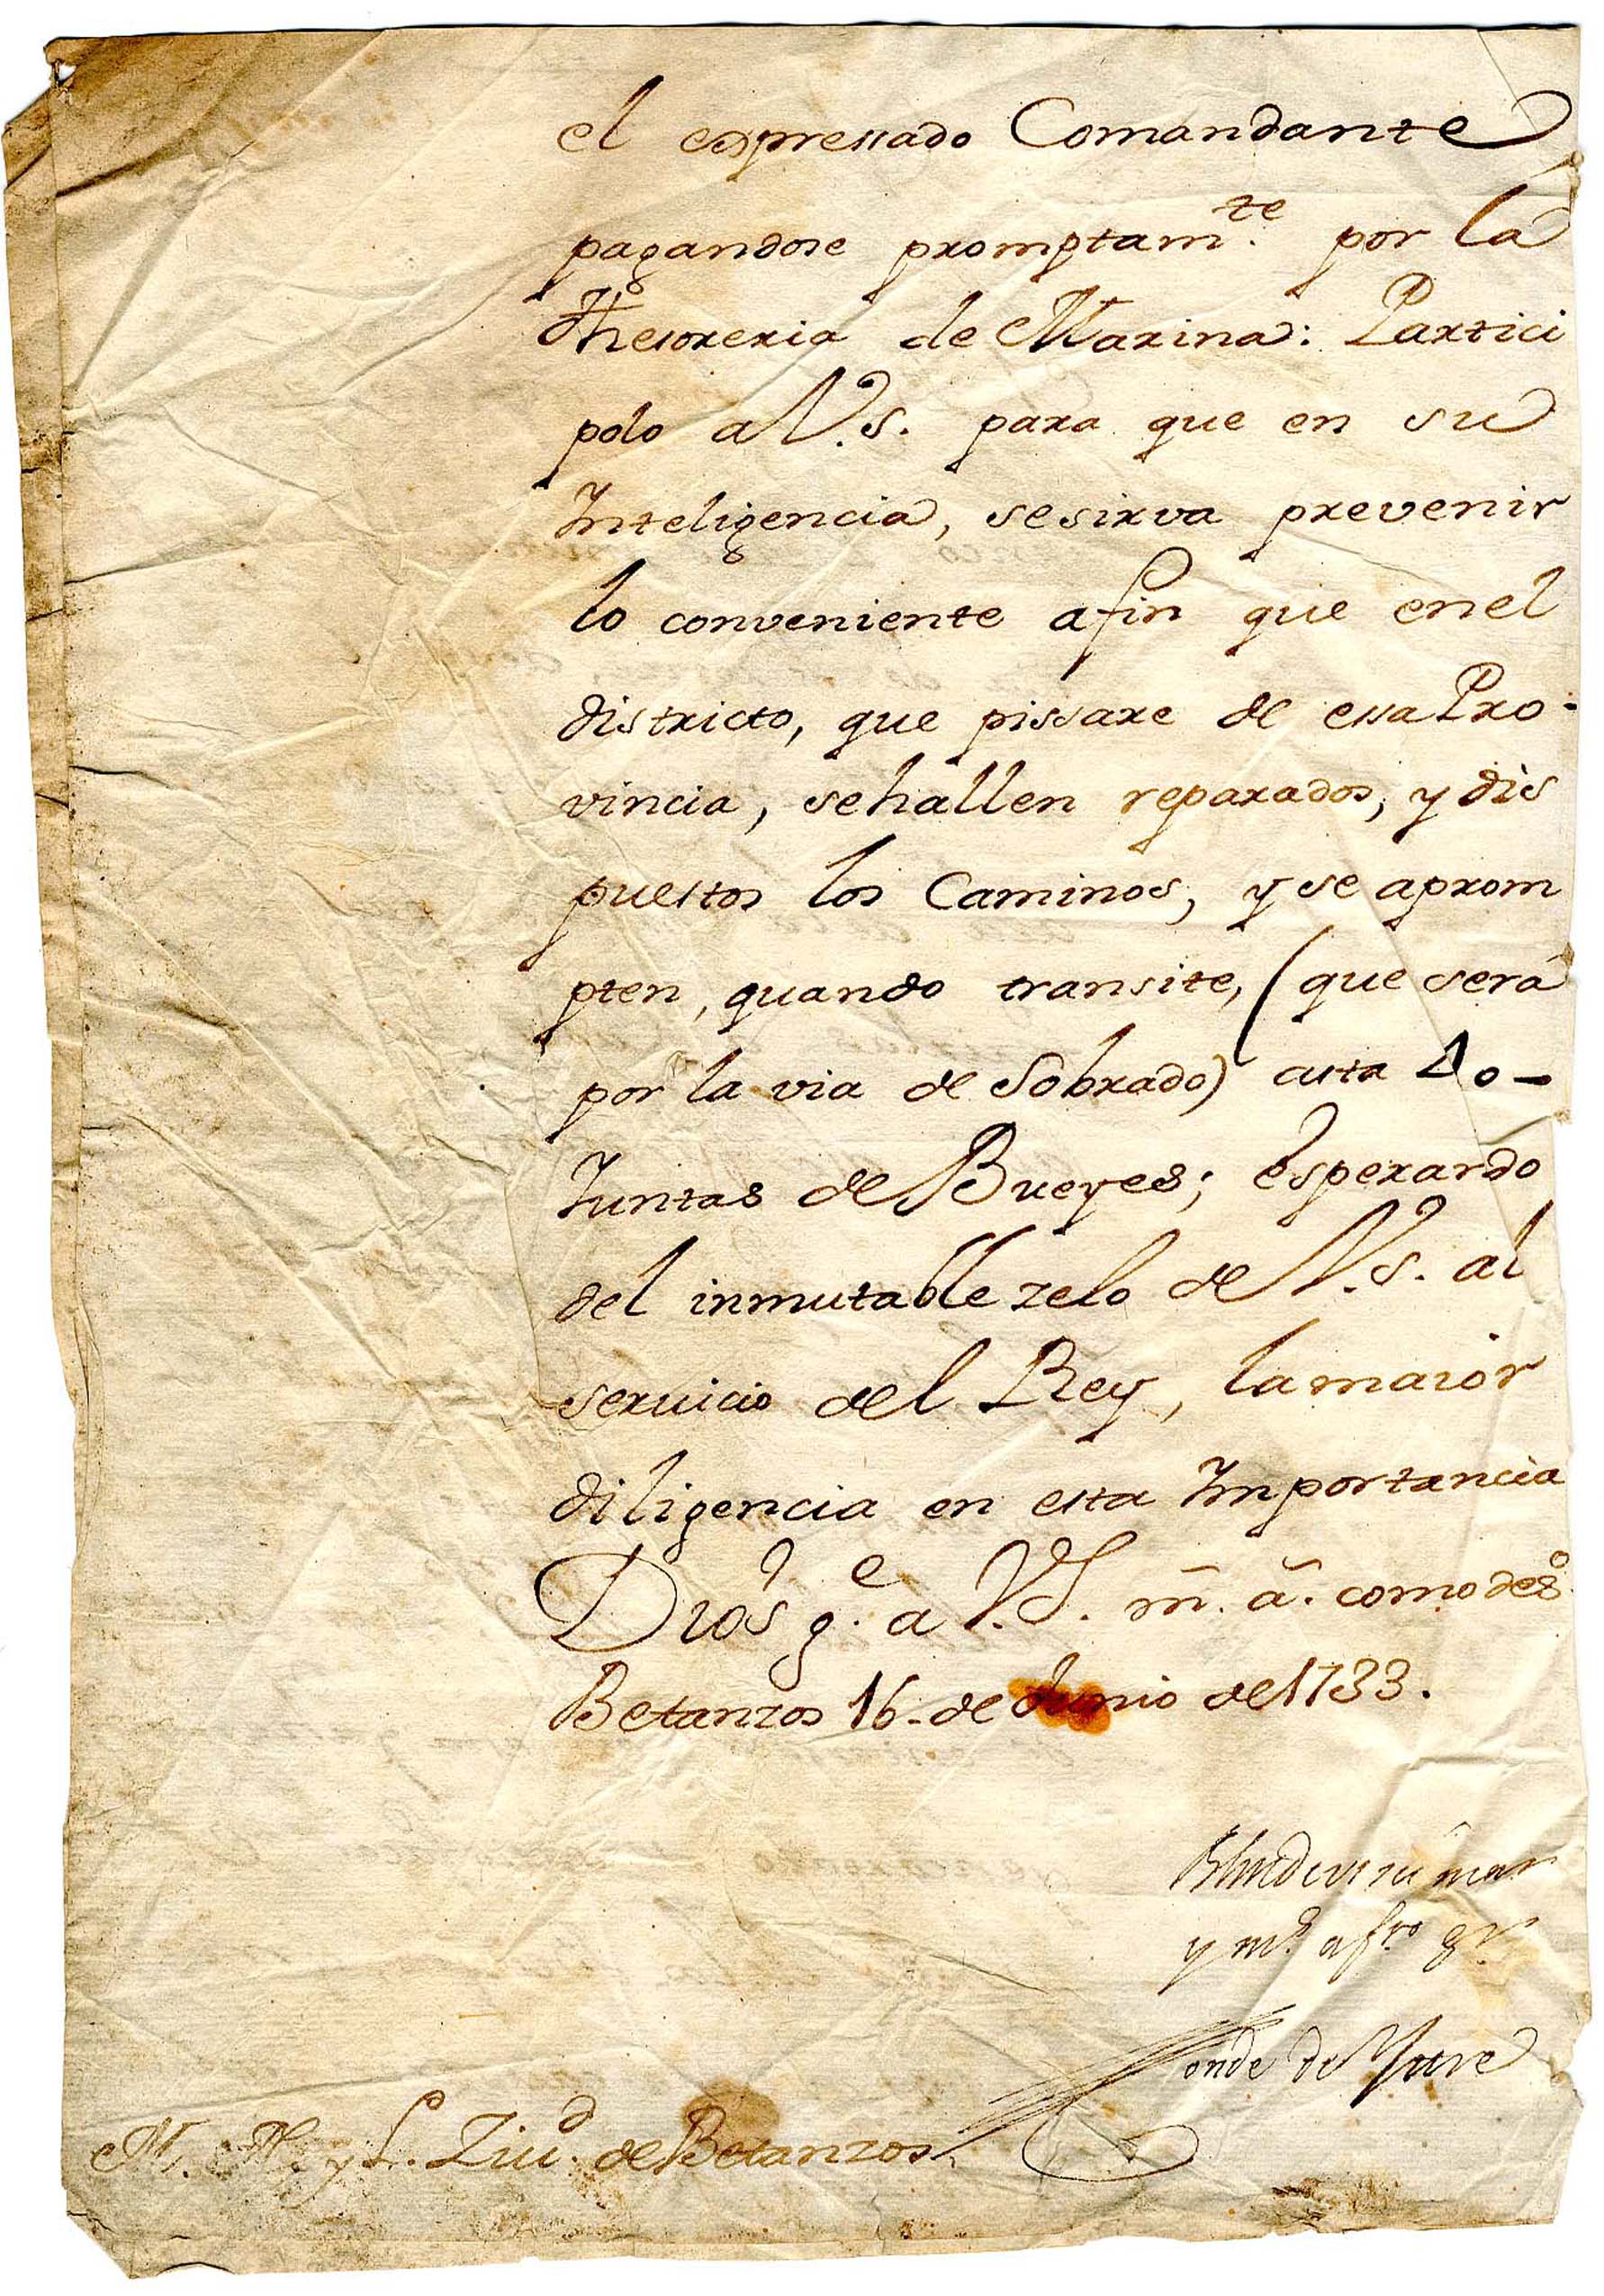 el expressado Comandante
pagandose promptam.te por la
Thesoreria de Marina: Partici
polo a V.S. para que en su
Inteligencia, sesirva prevenir
lo conveniente afin que enel
districto, que pissare de essa Pro-
vincia, sehallen reparados, y dis
puestos los Caminos, y se aprom
pten, quando transite, (que será
por la via de Sobrado)
Juntas de Bueyes; esperando
del inmutable zelo de V.S. al
servicio del Rey, lamaior
diligencia en esta Importancia
Dios g.e a V.S. m̃. ã. como deso
Betanzos 16. de Junio de 1733.
onde de Ytre
M. N. y L. Ziu.d de Betanzos